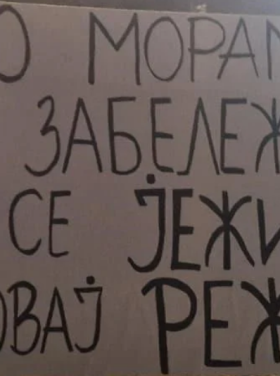 О МОРАМ
ЗАБЕЛЕЖ
СЕ ЈЕЖИ
ОВАЈ РЕЖ